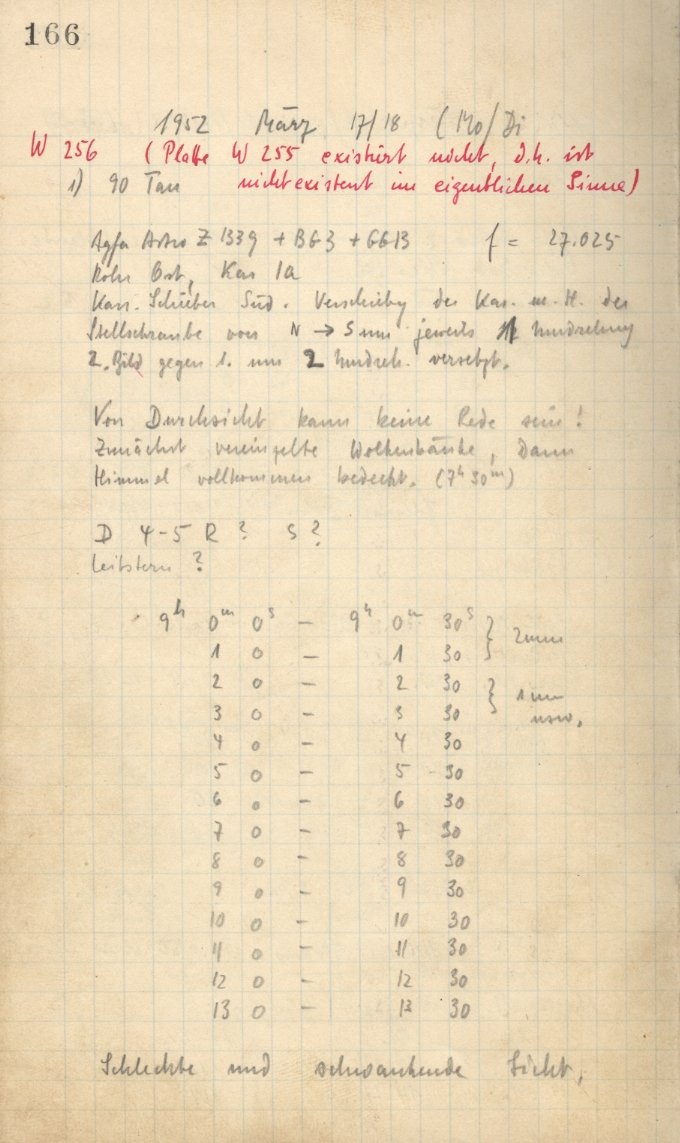 166
1952 März 17/18 (Mo/Di
W 256 (Platte W 255 existiert nicht, d.h. ist
1) 90 Tau nicht existent im eigentlichen Sinne)
Agfa Astro Z 1339 + BG3 + GG13 f = 27.025
Rohr Ost, Kas 1a
Kass. Schieber Süd. Verschiebg der Kas. m. H. der
Stellschraube von N → S um jeweils 1 Umdrehung
2. Bild gegen 1. um 2 Umdreh. versetzt.
Von Durchsicht kann keine Rede sein!
Zunächst vereinzelte Wolkenbänke, dann
Himmel vollkommen bedeckt. (7h 30m)
D 4-5 R ? S ?
Leitstern ?
9h 0m 0s - 9h 0m 30s } 2mm
1 0 - 1 30
2 0 - 2 30 } 1mm
3 0 - 3 30 usw.
4 0 - 4 30
5 0 - 5 30
6 0 - 6 30
7 0 - 7 30
8 0 - 8 30
9 0 - 9 30
10 0 - 10 30
11 0 - 11 30
12 0 - 12 30
13 0 - 13 30
Schlechte und schwankende Sicht,